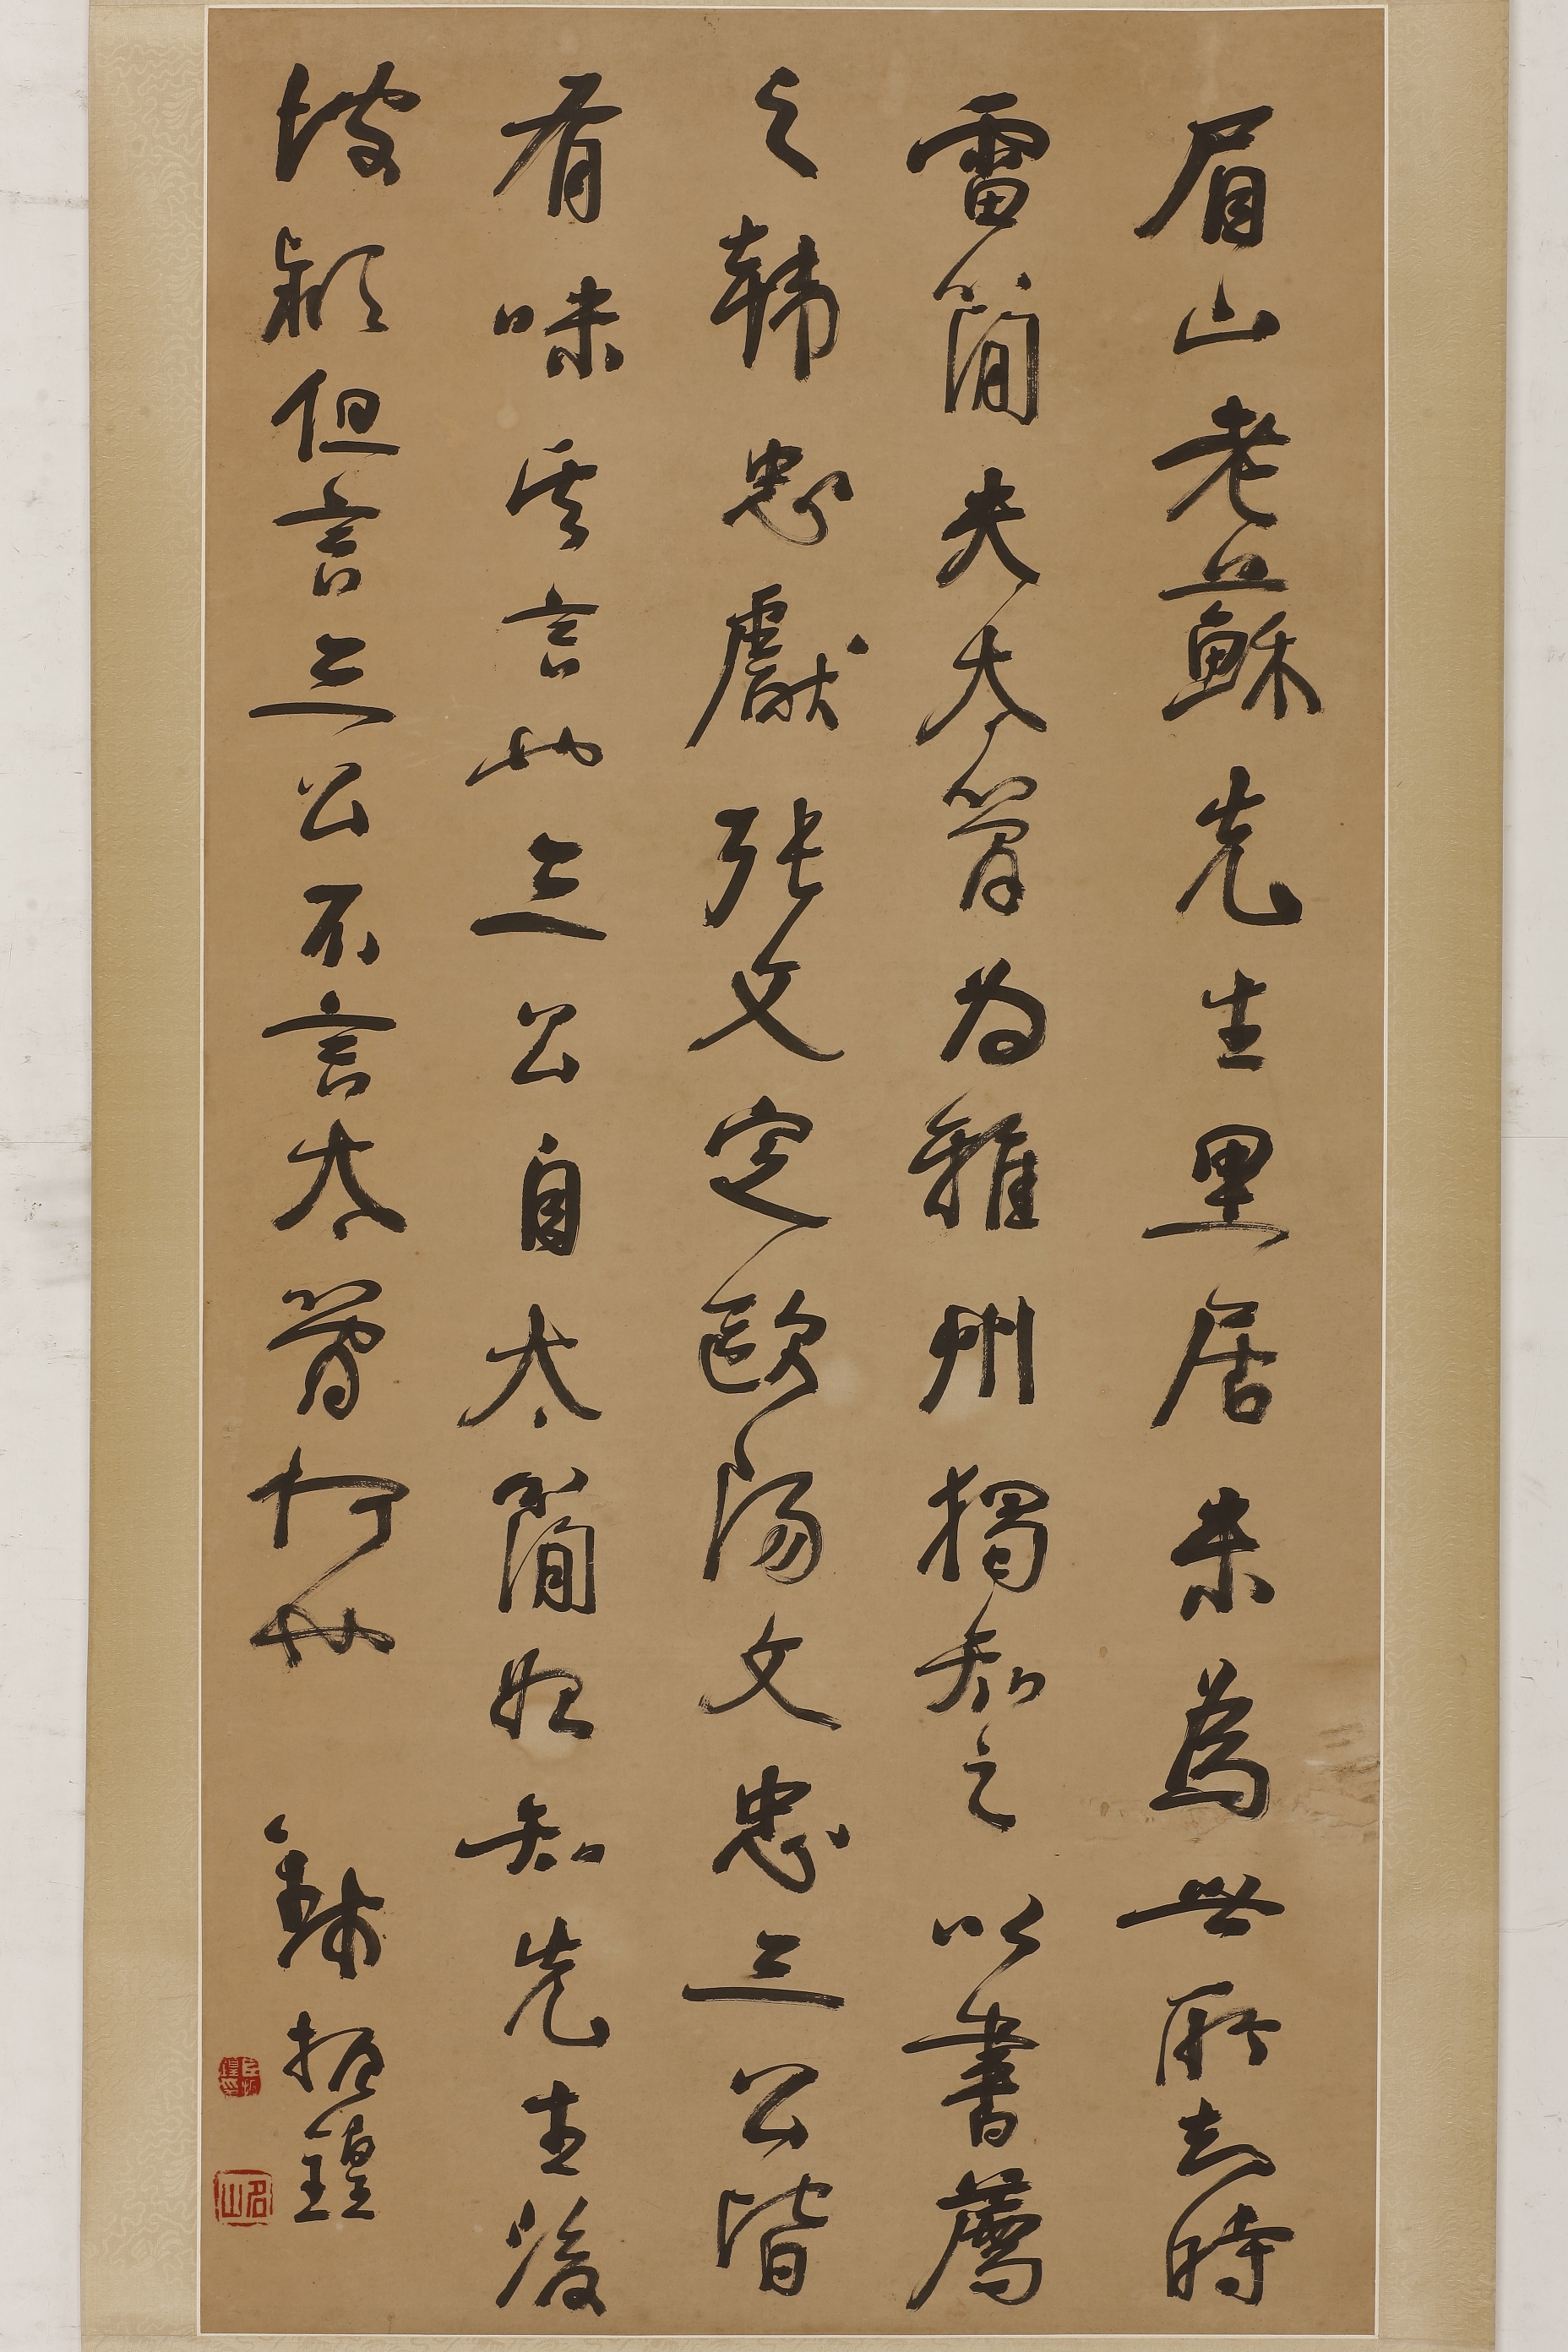 眉山老蘇先生里居未為世所知時
雷簡夫太簡為雅州獨知之以書薦
之韓忠獻張文定歐陽文忠三公皆
有味其言也三公自太簡始知先生後
坡潁但言三公不言太簡何也
振瑝